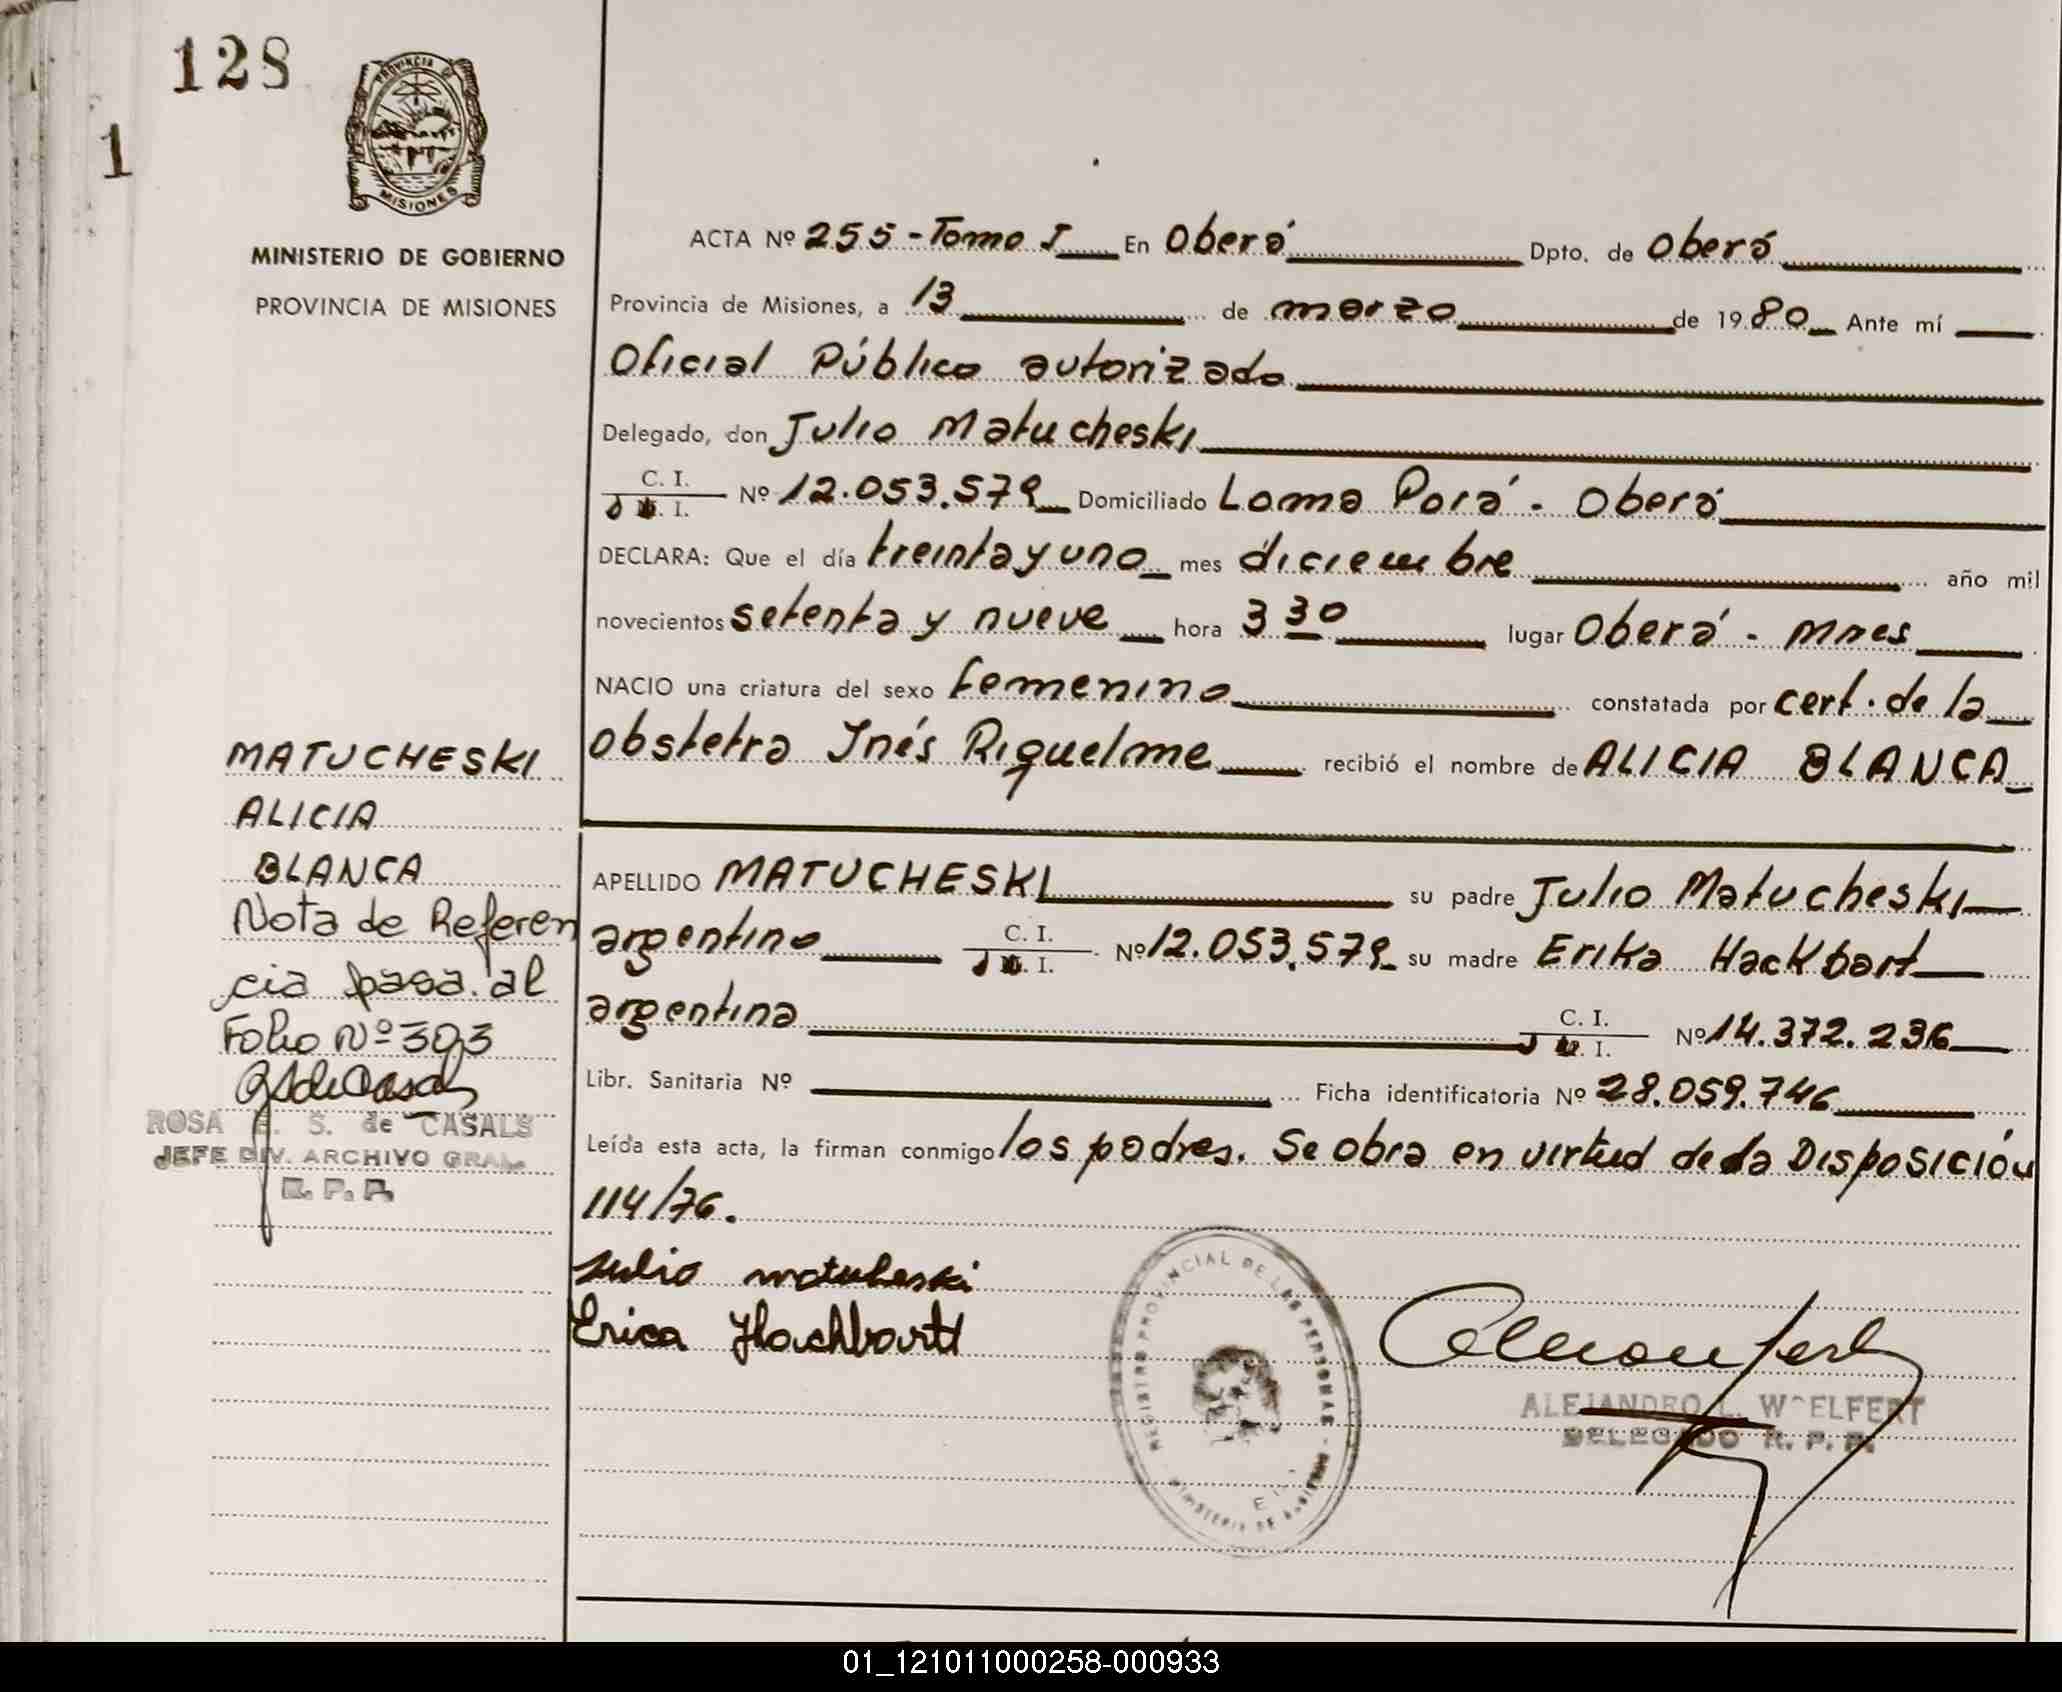 128
1
PROVINCIA DE
MISIONES
MINISTERIO DE GOBIERNO
PROVINCIA DE MISIONES
ACTA Nº 255 - Tomo I En Oberá Dpto. de Oberá
Provincia de Misiones, a 13 de marzo de 1980 Ante mí
Oficial Público autorizado
Delegado, don Julio Matucheski
C. I.
Nº 12.053.579 Domiciliado Loma Porá - Oberá
I.
DECLARA: Que el día treinta y uno mes diciembre año mil
novecientos setenta y nueve hora 3 30 lugar Oberá - Mnes
NACIO una criatura del sexo femenino constatada por cert. de la
obstetra Inés Riquelme recibió el nombre de ALICIA BLANCA
MATUCHESKI
ALICIA
BLANCA
Nota de Referen
cia pasa al
Folio Nº 303
ROSA S. de CASALS
JEFE DIV. ARCHIVO GRAL.
R. P. P.
APELLIDO MATUCHESKI su padre Julio Matucheski
argentino C. I. Nº 12.053.579 su madre Erika Hackbart
I.
argentina C. I. Nº 14.372.236
I.
Libr. Sanitaria Nº Ficha identificatoria Nº 28.059.746
Leída esta acta, la firman conmigo los padres. Se obra en virtud de la Disposición
114/76.
Julio matucheski
Erica Hachbartt
REGISTRO PROVINCIAL DE LAS PERSONAS
MINISTERIO DE GOBIERNO
ALEJANDRO L. WELFERT
DELEGADO R. P. P.
01_121011000258-000933